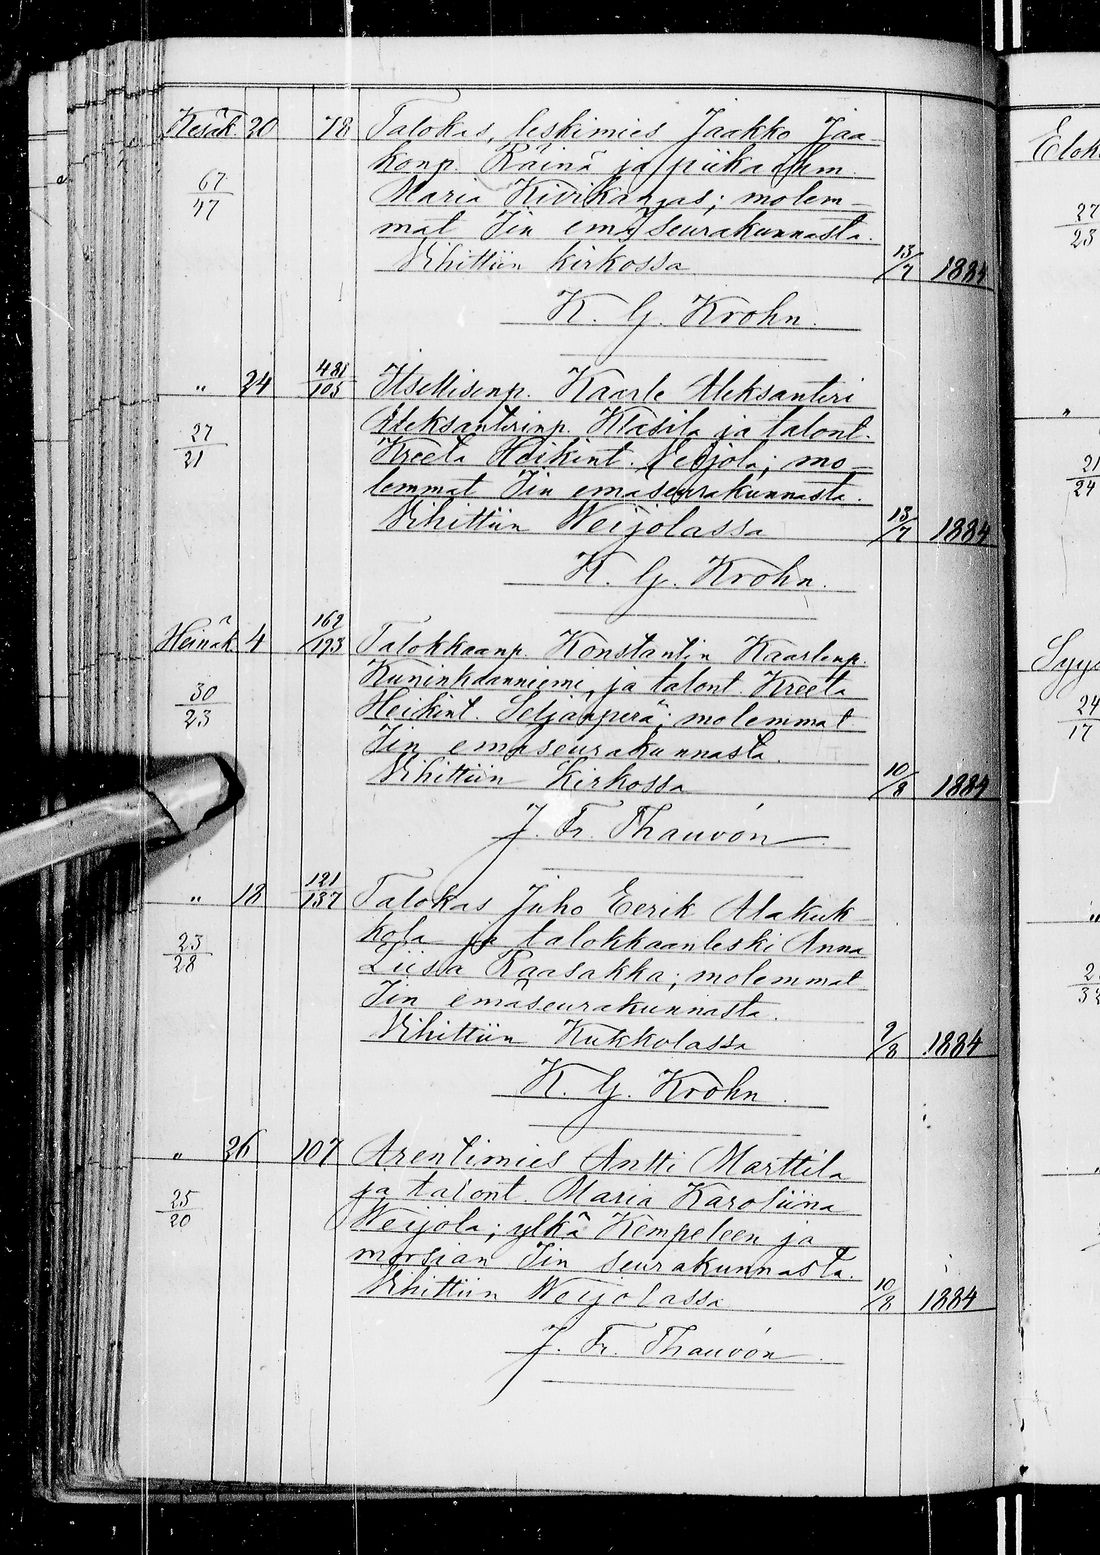 Kesäk 20 78 Talokas, leskimies Jaakko Jaa-
konp. Räinä ja piika
67/47 Maria Kivikangas; molem-
mat Iin emäseurakunnasta.
Vihittiin kirkossa 13/7 1884
K. G. Krohn.
" 24 481/105 Itsellisenp. Kaarle Aleksanteri
Aleksanterinp. Klasila ja talont.
27/21 Kreeta Heikint. Veijola; mo-
lemmat Iin emäseurakunnasta.
Vihittiin Weijolassa 13/7 1884
K. G. Krohn.
Heinäk 4 162/193 Talokkaanp. Konstantin Kaarlenp.
Kuninkaanniemi, ja talont. Kreeta
30/23 Heikint. Seljänperä; molemmat
Iin emäseurakunnasta.
Vihittiin Kirkossa 10/8 1884
J. Fr. Thauvón
" 18 121/137 Talokas Juho Eerik Alakuk-
kola ja talokkaanleski Anna
23/28 Liisa Raasakka; molemmat
Iin emäseurakunnasta.
Vihittiin Kukkolassa 9/8 1884
K. G. Krohn.
" 26 107 Arentimies Antti Marttila
ja talont. Maria Karoliina
25/20 Weijola; ylkä Kempeleen ja
morsian Iin seurakunnasta.
Vihittiin Weijolassa 10/8 1884
J. Fr. Thauvón.
Elok
27/23
"
21/24
Syys
24/17
"